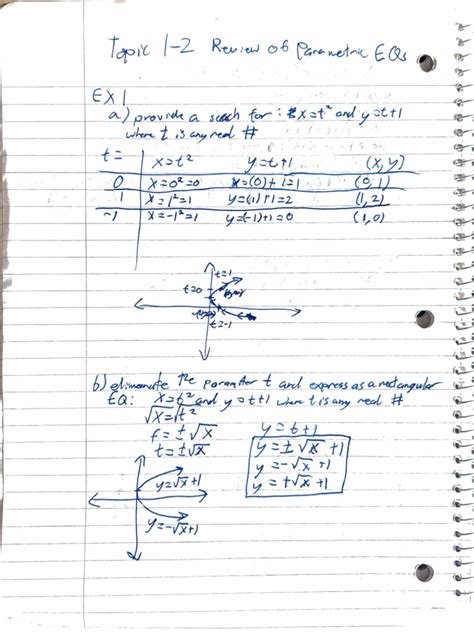 Topic 1-2 Review of Parametric EQs
EX1
a) provide a scech for: x=t² and y=t+1
where t is any real #
t= x=t² y=t+1 (x,y)
0 x=0²=0 x=(0)+1=1 (0,1)
1 x=1²=1 y=(1)+1=2 (1,2)
-1 x=-1²=1 y=(-1)+1=0 (1,0)
t=1
t=0
t=-1
b) elimenate the paramter t and express as a rectangular
EQ: x=t² and y=t+1 where t is any real #
√x=√t²
t=±√x y=t+1
t=±√x y=±√x+1
y=-√x+1
y=+√x+1
y=√x+1
y=-√x+1